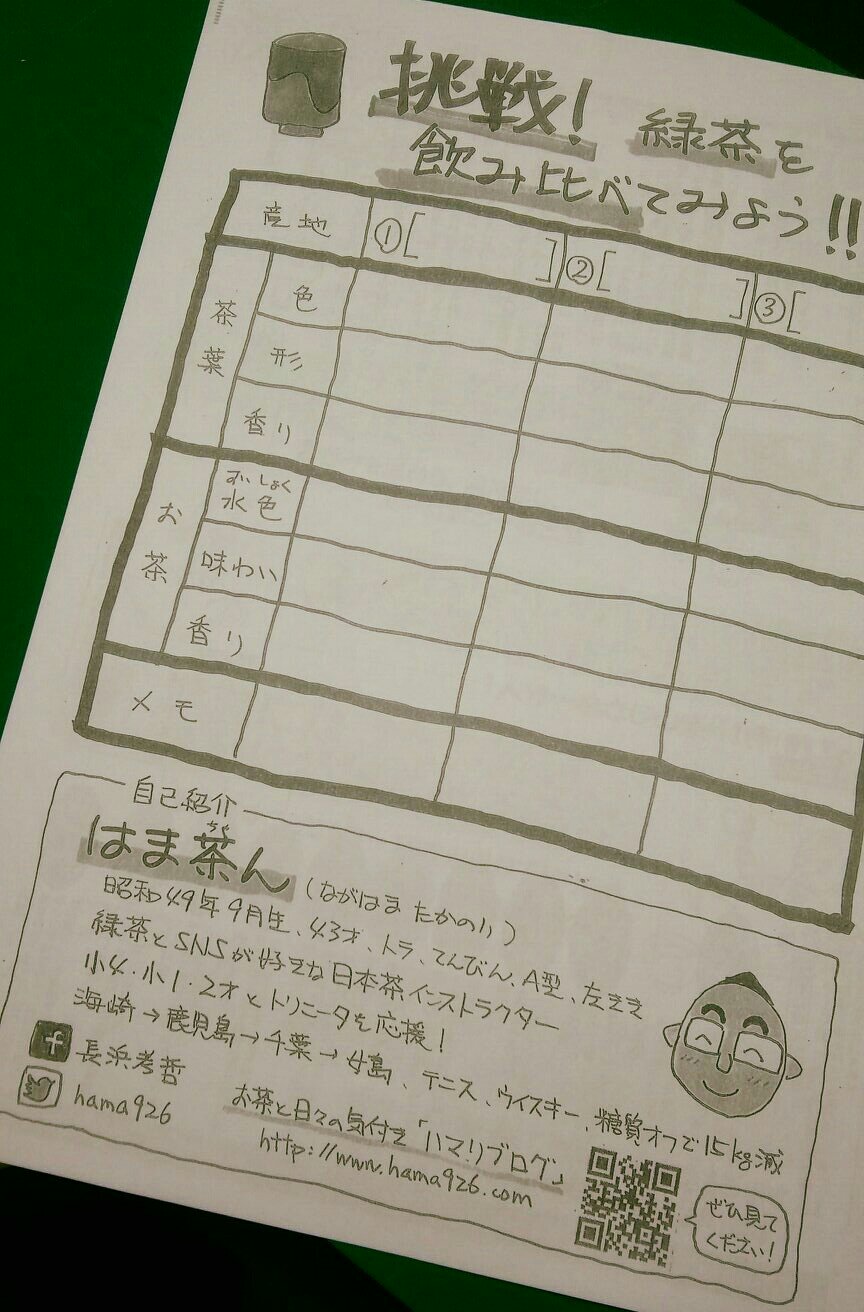 挑戦! 緑茶を
飲み比べてみよう!!
産地 ①[ ] ②[ ] ③[
茶葉
色
形
香り
お茶
すいしょく
水色
味わい
香り
メモ
自己紹介
ちゃ
はま茶ん (ながはま たかのり)
昭和49年9月生、43才、トラ、てんびん、A型、左きき
緑茶とSNSが好きな日本茶インストラクター
小4・小1・2才とトリニータを応援!
海崎→鹿児島→千葉→女島、テニス、ウイスキー、糖質オフで15kg減
長浜考哲
hama926
お茶と日々の気付き「ハマリブログ」
http://www.hama926.com
ぜひ見て
ください!